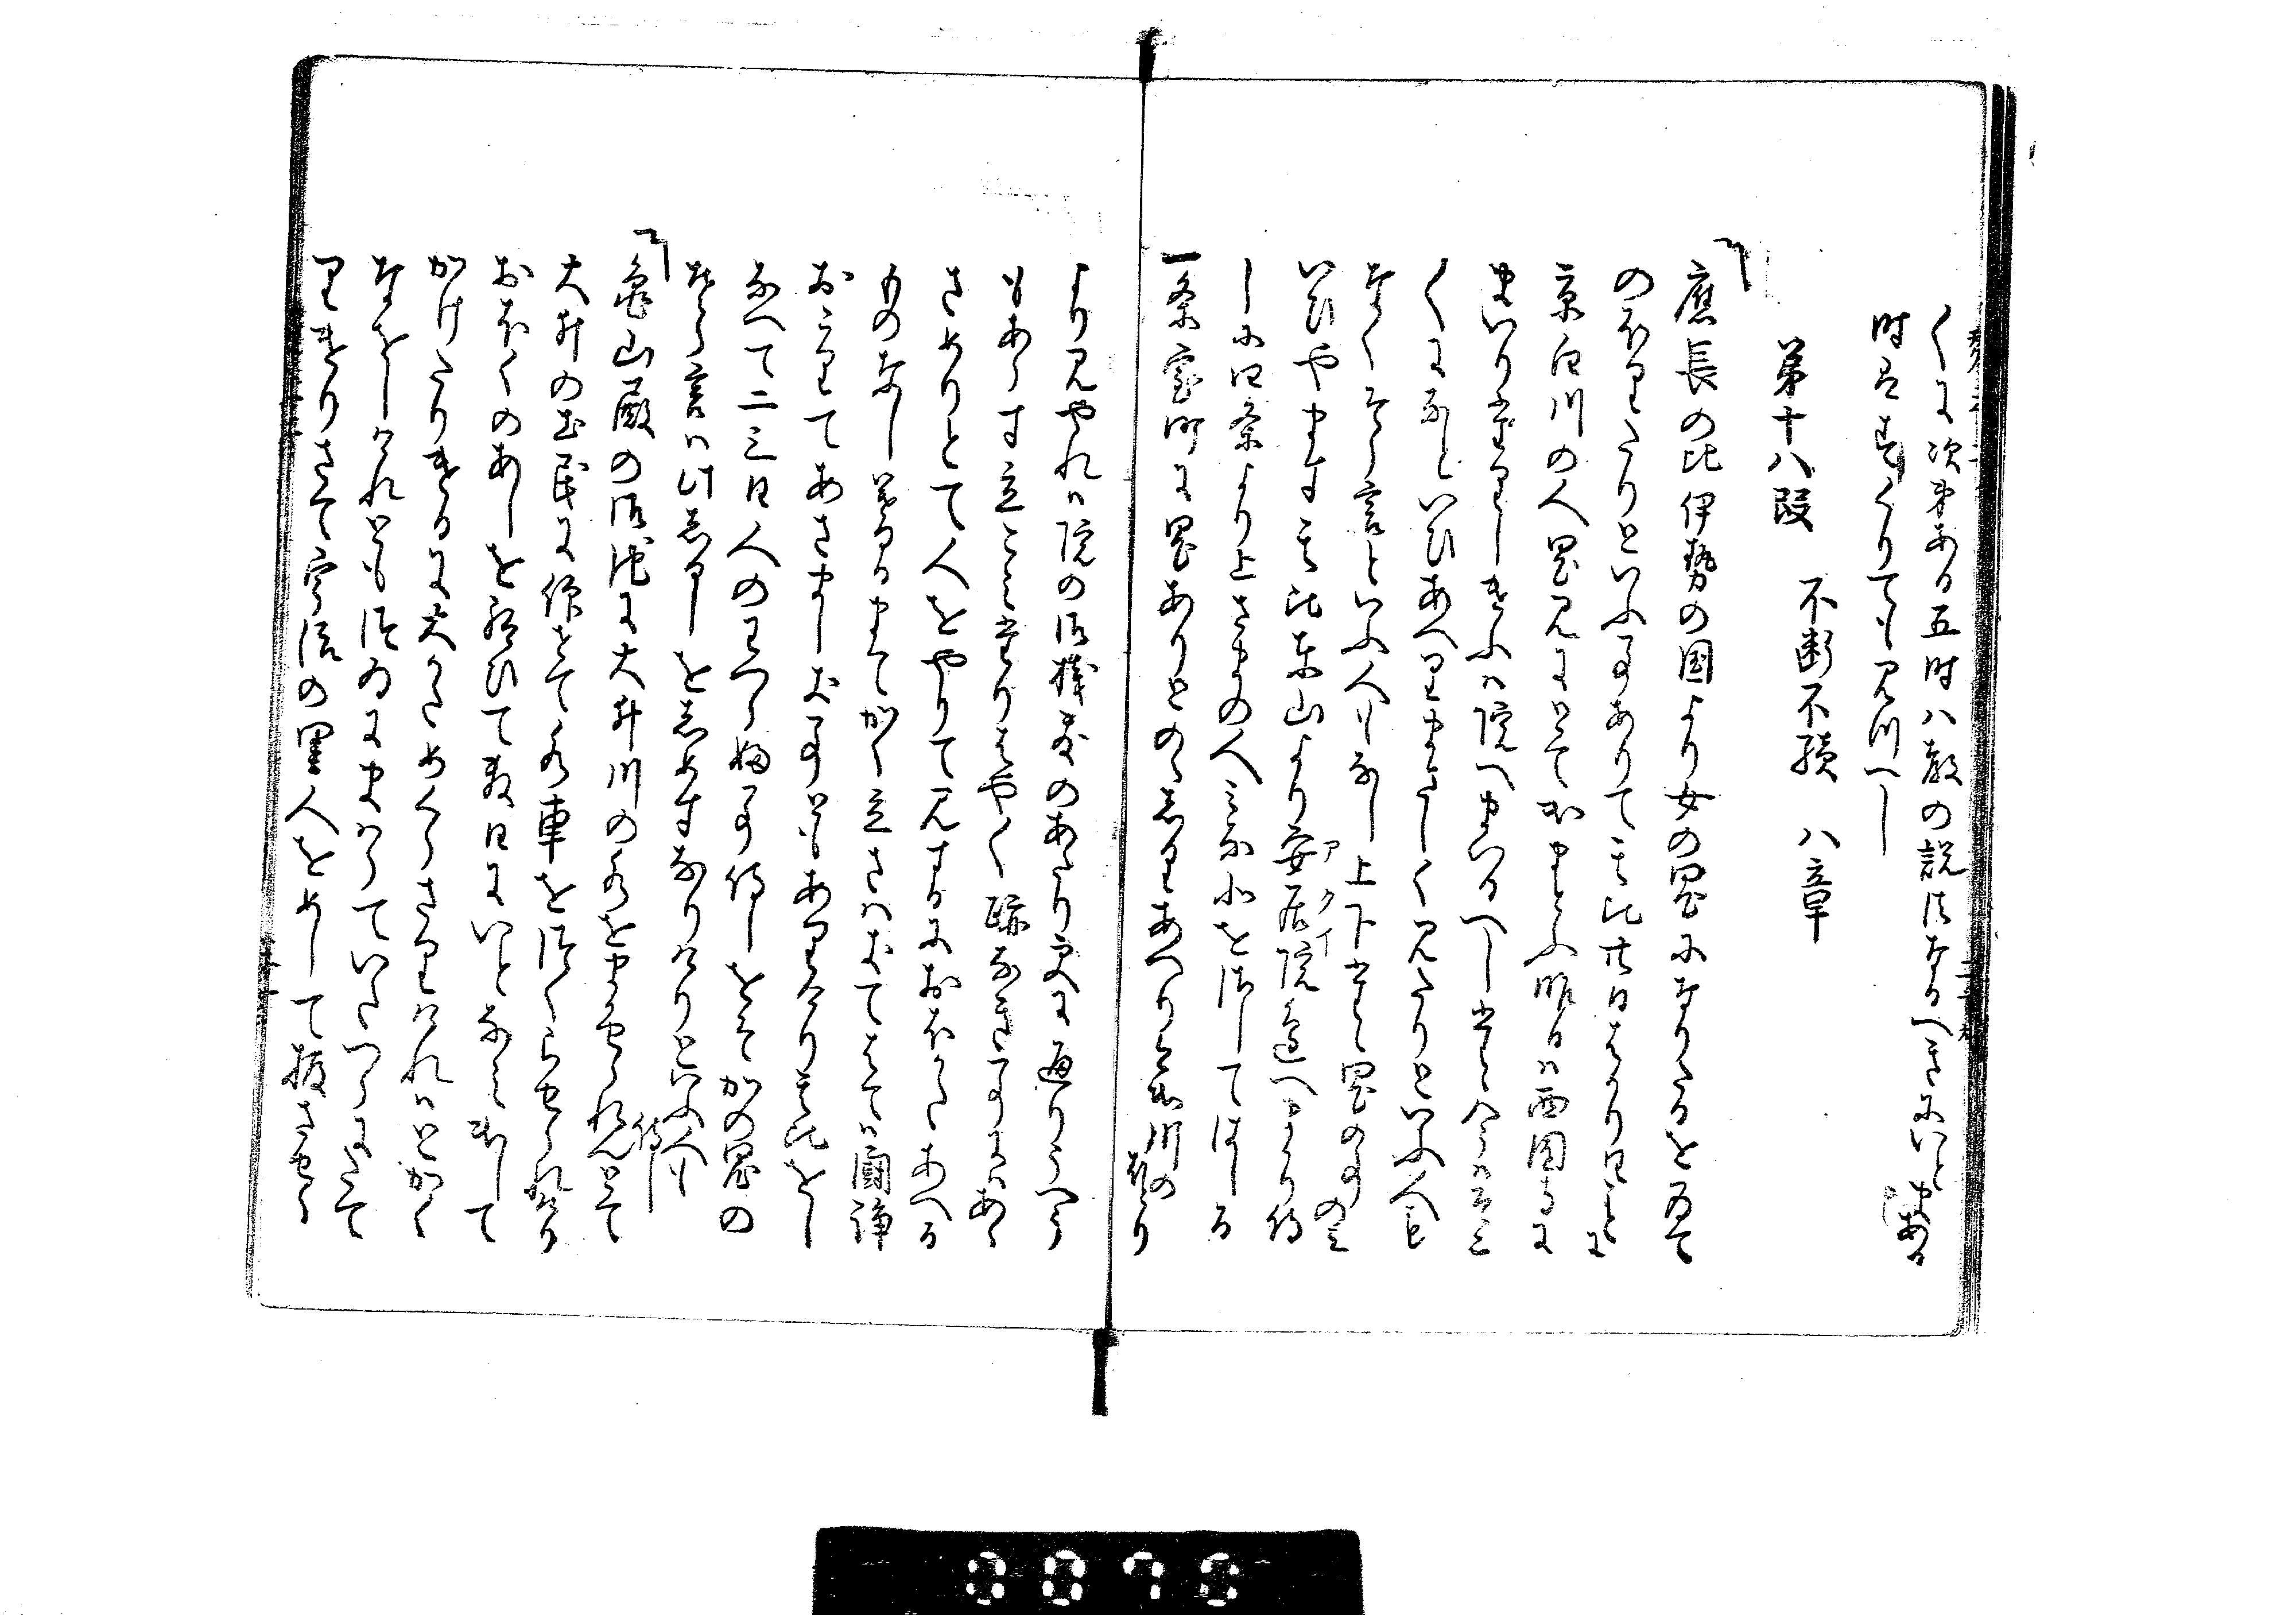 くに次第ある五時八教の説法なるへきにいとまある
時はをくりても見つへし
第十八段　不断不続　八章
應長の比伊勢の国より女の鬼になりたるを ゐて
のほりたりといふ事ありて其比廿日はかり日ことに
京白川の人鬼見にとて出まとふ昨日は西園寺に
まいりたりしけふは院へまいるへしたゝ今はそこ
くになといひあへりまさしく見たりといふ人も
なくそら言といふ人もなし上下たゝ鬼の事のみ
いひやます其比東山より安居院邊へまかり侍
アクイ
しに四条より上さまの人みな北をさしてはしる
一条室町に鬼ありとのゝしりあへり今出川の邊
より見やれは院の御棧敷のあたり更に通りうへう
もあらす立こみたりはやく跡なき事にはあら
さめりとて人をやりて見するにおほかたあへる
ものなし暮るまてかく立さはきてはては闘諍
おこりてあさましき事ともありけり其比をし
なへて二三日人のわつらふ事侍しをそかの鬼の
そら言は此しるしをしめすなりけりといふ人も
侍し
亀山殿の御池に大井川の水をまかせられんとて
大井の土民に仰せて水車を作らせられけり
おほくのあしを給ひて数日にいとなみ出して
かけたりけるに大かためくらさりけれはとかく
なをしけれとも終にまはらていたつらにたて
りけりさて宇治の里人をめして拵させら